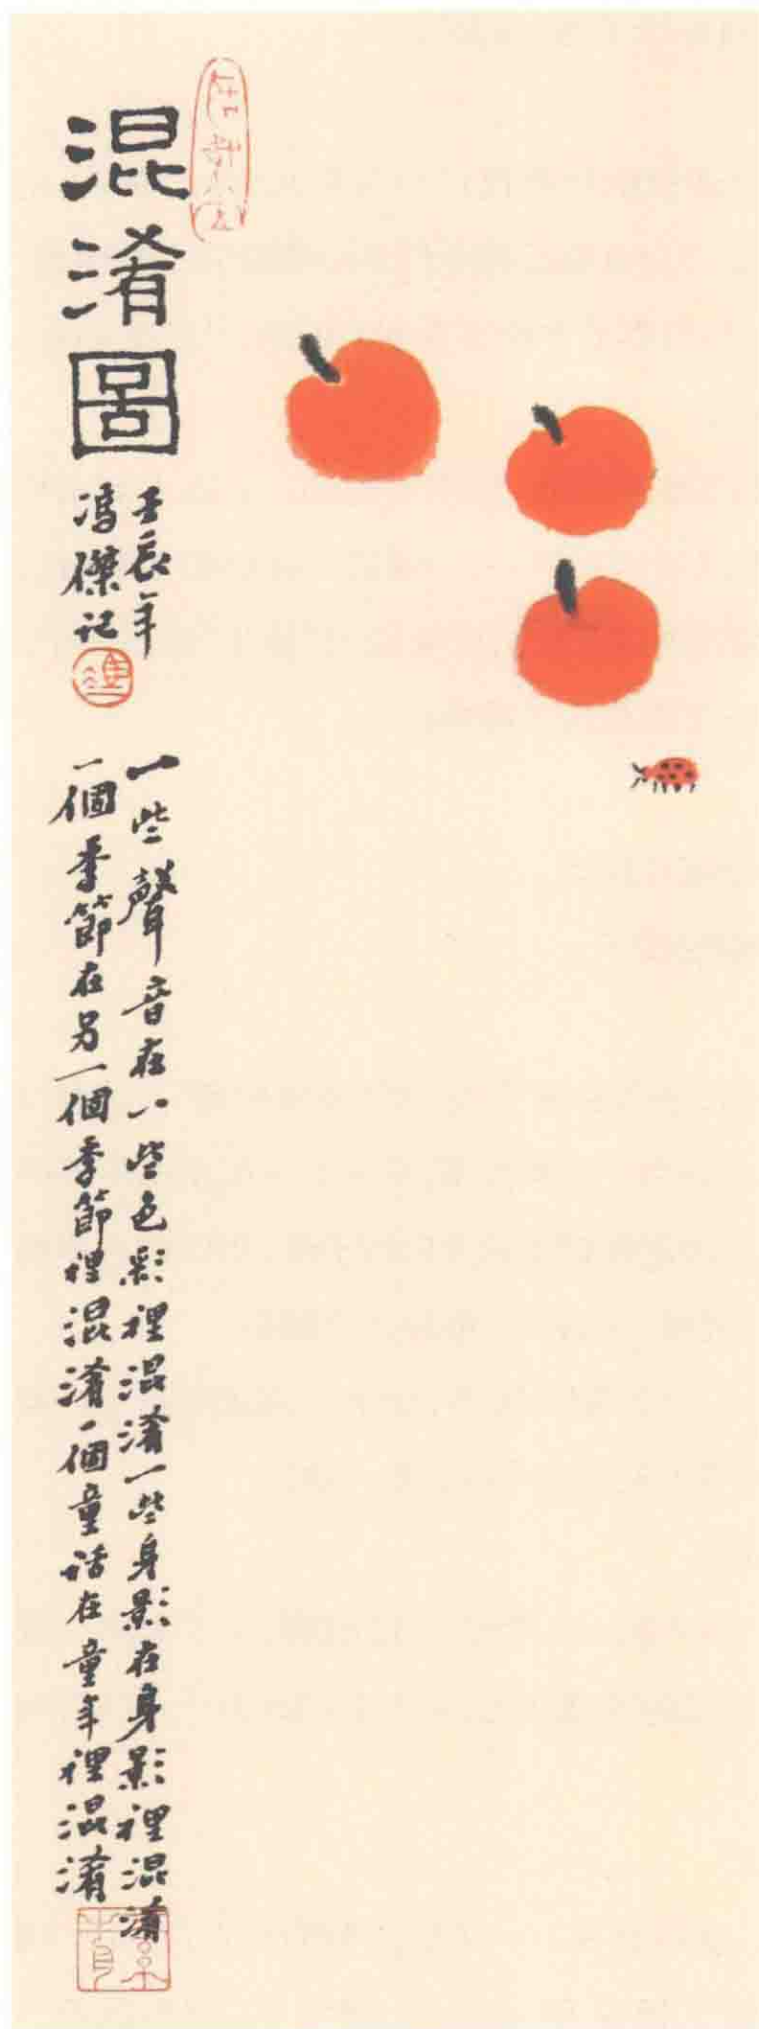 混淆圖
壬辰年
馮傑記
一些聲音在一些色彩裡混淆一些身影在身影裡混淆
一個季節在另一個季節裡混淆一個童話在童年裡混淆